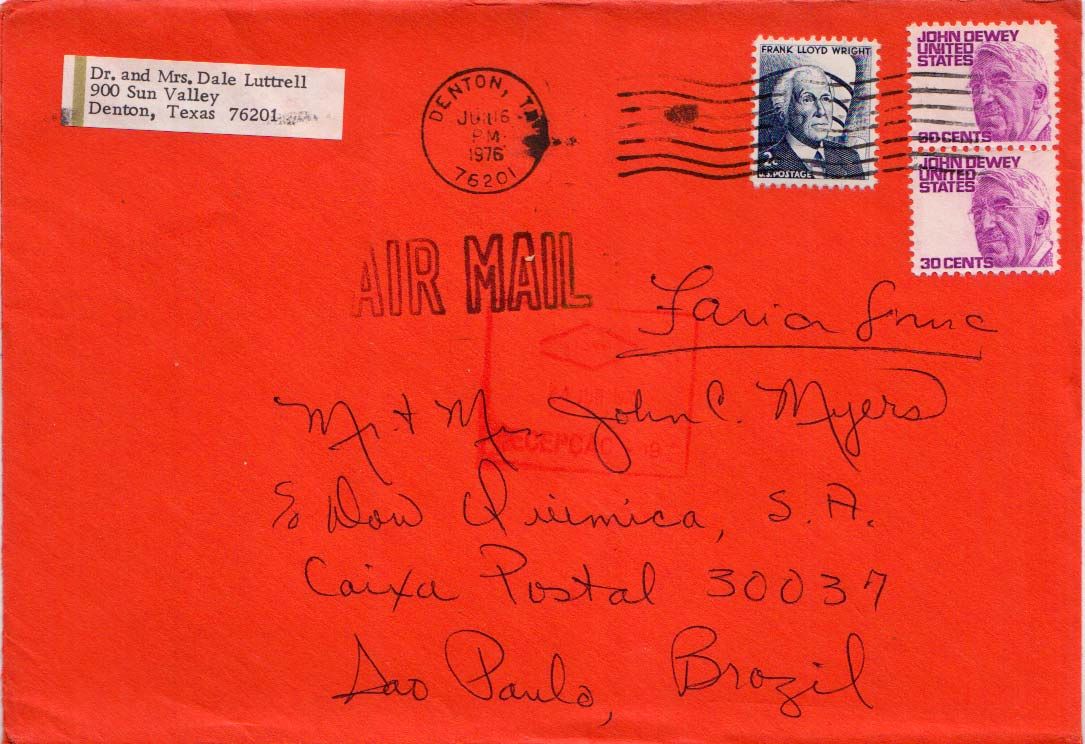 Dr. and Mrs. Dale Luttrell
900 Sun Valley
Denton, Texas 76201
DENTON, TX
JUN 16
PM
1976
76201
FRANK LLOYD WRIGHT
2¢
U.S. POSTAGE
JOHN DEWEY
UNITED
STATES
30 CENTS
JOHN DEWEY
UNITED
STATES
30 CENTS
AIR MAIL
Faria
RECEPÇÃO
Mr. + Mrs. John C. Myers
c/o Dow Quimica, S. A.
Caixa Postal 30037
Sao Paulo, Brazil